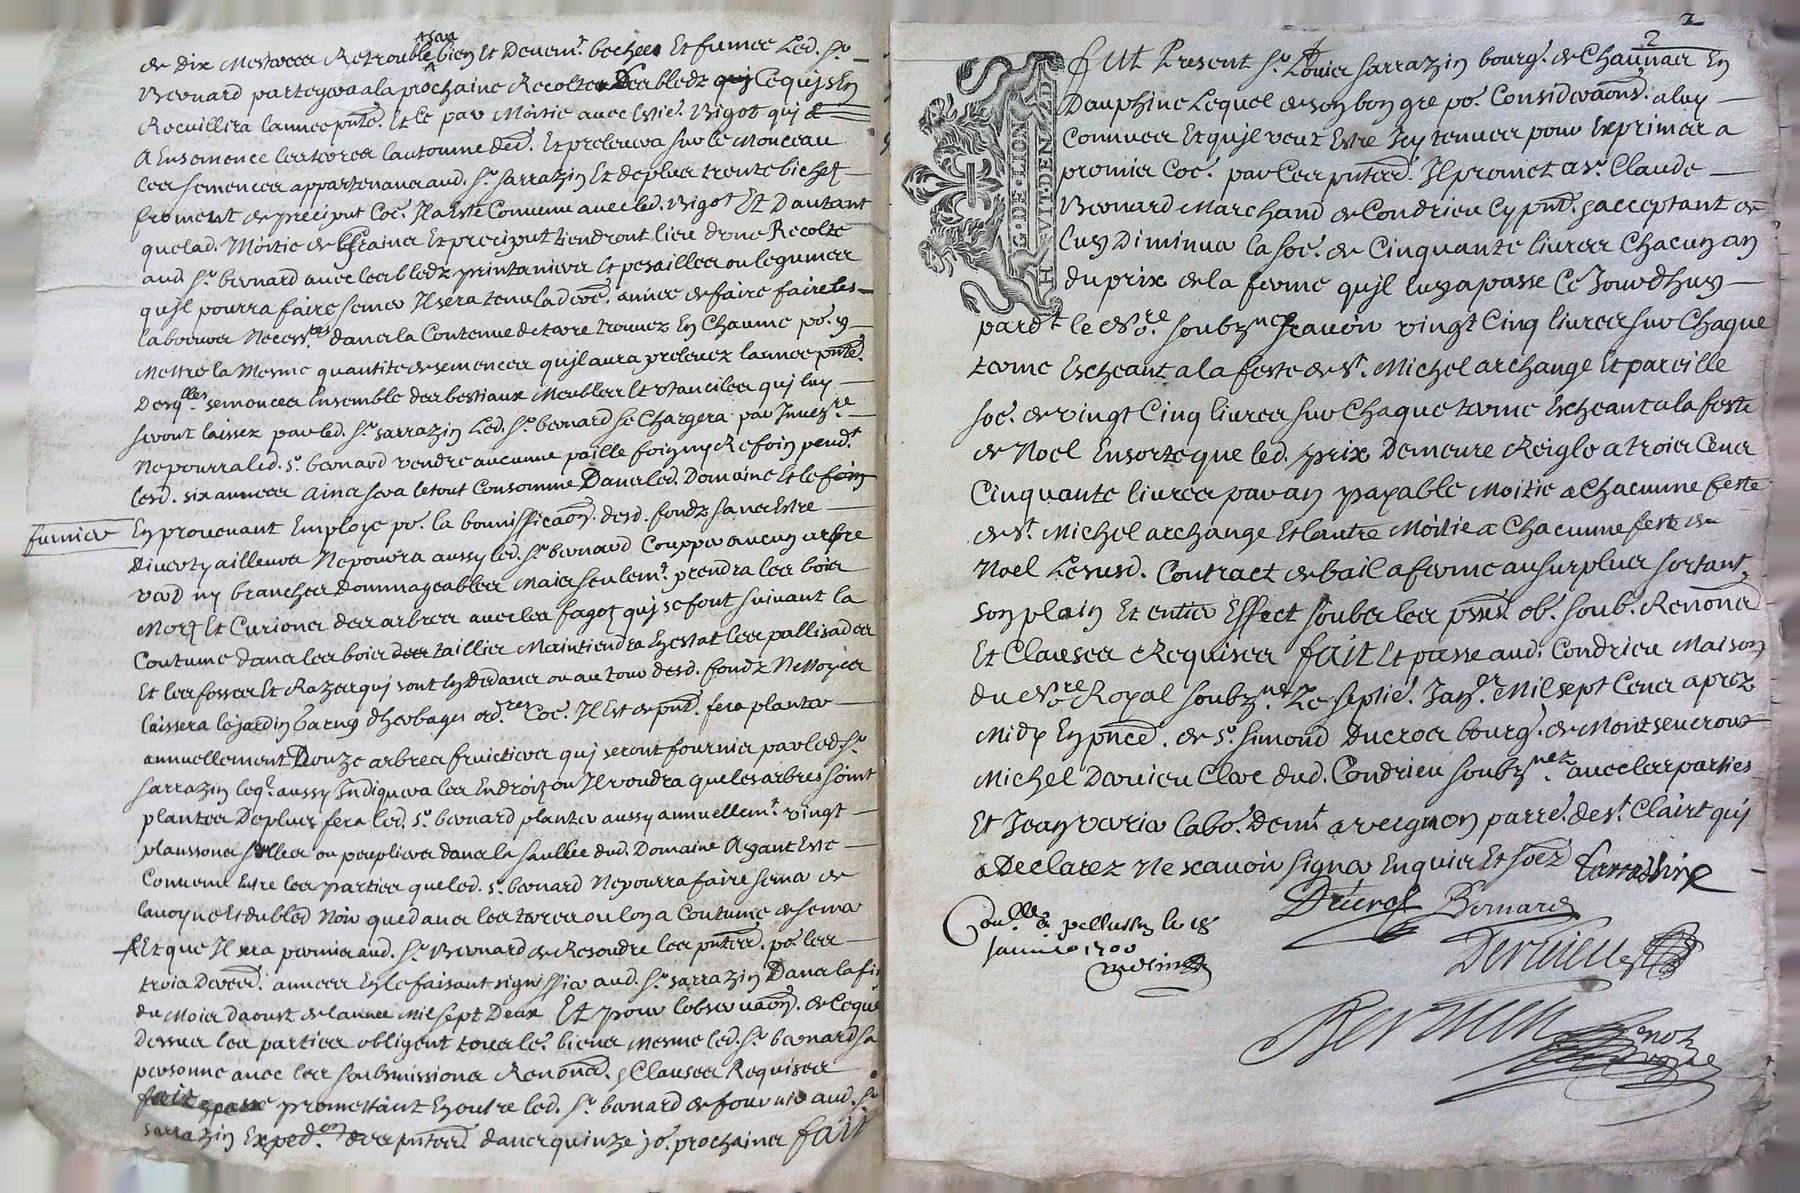 de Dix Mesteres Retrouble bien Et Deuemt. bechees Et fumee Led. Sr.
Bernard partegera a la prochaine Recolte Des bledz Cequj sen
Recuillira lannee pnte. Et le par Moitie avec Bigot quj
A Ensemence les terres lautomne der. Et prelevera sur le Monceau
les semences appartenans aud. Sr. Sarrazin Et de plus trente bichetz
froment de preciput Coe. Il a este Convenu avec led. Bigot Et Dautant
que lad. Moitie de Graines Et preciput tiendront lieu dune Recolte
aud Sr. bernard avec les bledz printaniers Et pesailles ou legumes
qujl pourra faire semer Il sera tenu lad. annee de faire faire les
labours Necessres. dans la Contenue de terre trouvez En Chaume po. y
Mettre la Mesme quantite de semences qujl aura prelevez lannee pnte.
Desqlles. semences Ensemble des bestiaux Meubles Et Utanciles quj luy
seront laissez par led. Sr. Sarrazin Led. Sr. bernard se Chargera par Invezre.
Ne pourra led. Sr. bernard vendre aucunne paille foin ny Refoin pendt.
lesd. six annees ains sera le tout Consomme Dans led. Domaine Et le foin
fumier
En provenant Employe po. la bonnifficaon. desd. fondz sans Estre
Diverty ailleurs Ne pourra aussy led. Sr. bernard Coupper aucun arbre
verd ny branches Dommageables Mais seulemt. prendra les bois
Morz Et Curions des arbres avec les fagotz quj se font suivant la
Coutume dans les bois des taillier Maintiendra En estat les pallisades
Et les fosses Et Razes quj sont En dedans ou au tour desd. fondz Nettoyes
laissera le jardin garny dherbages ordres. Coe. Il Est de pnt. fera planter
annuellement Douze arbres fruictiers quj seront fournis par led. Sr.
Sarrazin leql. aussy Indiquera les Endroiz ou Il voudra que les arbres soint
plantes De plus fera led. Sr. bernard planter aussy annuellemt. vingt
plansons saules ou peupliers dans la saullee dud. Domaine Ayant Este
Convenu Entre les parties que led. Sr. bernard Ne pourra faire semer de
lavoyne Et du bled Noir que dans les terres ou lon a Coutume de semer
Et que Il sera permis aud. Sr. Bernard de Resoudre les pntes. po. les
trois Dernes. annees En le faisant signiffier aud. Sr. Sarrazin Dans la fin
du Mois daoust de lannee Mil sept Deux Et pour lobservaon. de Ceque
Dessus les parties obligent tous les. biens Mesme led. Sr. bernard sa
personne avec les soubmissions Renons. & Clauses Requises
fait & passe promettant En outre led. Sr. bernard de fournir aud. Sr
Sarrazin Exped.on des pntes. dans quinze jo. prochains fait
2
2
G. DE. LION
H. VIT. DEN. ZD
FUT Present Sr. Louis Sarrazin bourg. de Chaunas En
Dauphine Lequel de son bon gre po. Consideraons. a luy
Connues Et qujl veut Estre Icy tenues pour Exprimes a
promis Coe. par Ces pntes. Il promet a Sr. Claude
Bernard Marchand de Condrieu Cy pnt. & acceptant de
luy Diminuer la soe. de Cinquante livres Chacun an
du prix de la ferme qujl luy a passe Ce Jourdhuy
pardt. le Nore. soubzne. scavoir vingt Cinq livres sur Chaque
terme Escheant a la feste de St. Michel archange Et pareille
soe. de vingt Cinq livres sur Chaque terme Escheant a la feste
de Noel Ensorte que led. prix Demeure Reigle a trois Cens
Cinquante livres par an payable Moitie a Chacunne feste
de St. Michel archange Et lautre Moitie a Chacunne feste de
Noel Le susd. Contract de bail a ferme au surplus sortant
son plain Et entier Effect soubs les pntes. ob. soub. Renons.
Et Clauses Requises fait Et passe aud. Condrieu Maison
du Nore. Royal soubzne. Le septie. Janer. Mil sept Cens aprez
Midy En pnce. de Sr. Simond Ducros bourg. de Montseuroux
Michel Dervieu Clerc dud. Condrieu soubznez. avec les parties
Et Jean verier labo. Demt. a vergnon parre. de St. Clairt quj
a Declarez Ne scavoir signer Enquis Et soez Sarrazin
Ducros Bernard
Dervieu
Conlle. a pellussin le 18
janvier 1700
Dervieu